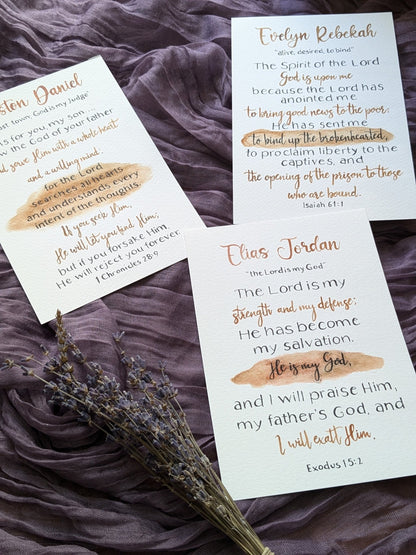 Daniel
town, God is my Judge"
for you, my son
the God of your father
serve Him with a whole heart
and a willing mind
for the Lord
searches all hearts
and understands every
intent of the thoughts.
If you seek Him,
He will let you find Him;
but if you forsake Him,
He will reject you forever.
1 Chronicles 28:9
Evelyn Rebekah
"alive, desired, to bind"
The Spirit of the Lord
God is upon me
because the Lord has
anointed me
to bring good news to the poor;
He has sent me
to bind up the brokenhearted,
to proclaim liberty to the
captives, and
the opening of the prison to those
who are bound.
Isaiah 61:1
Elias Jordan
"the Lord is my God"
The Lord is my
strength and my defense;
He has become
my salvation.
He is my God,
and I will praise Him,
my father's God, and
I will exalt Him.
Exodus 15:2